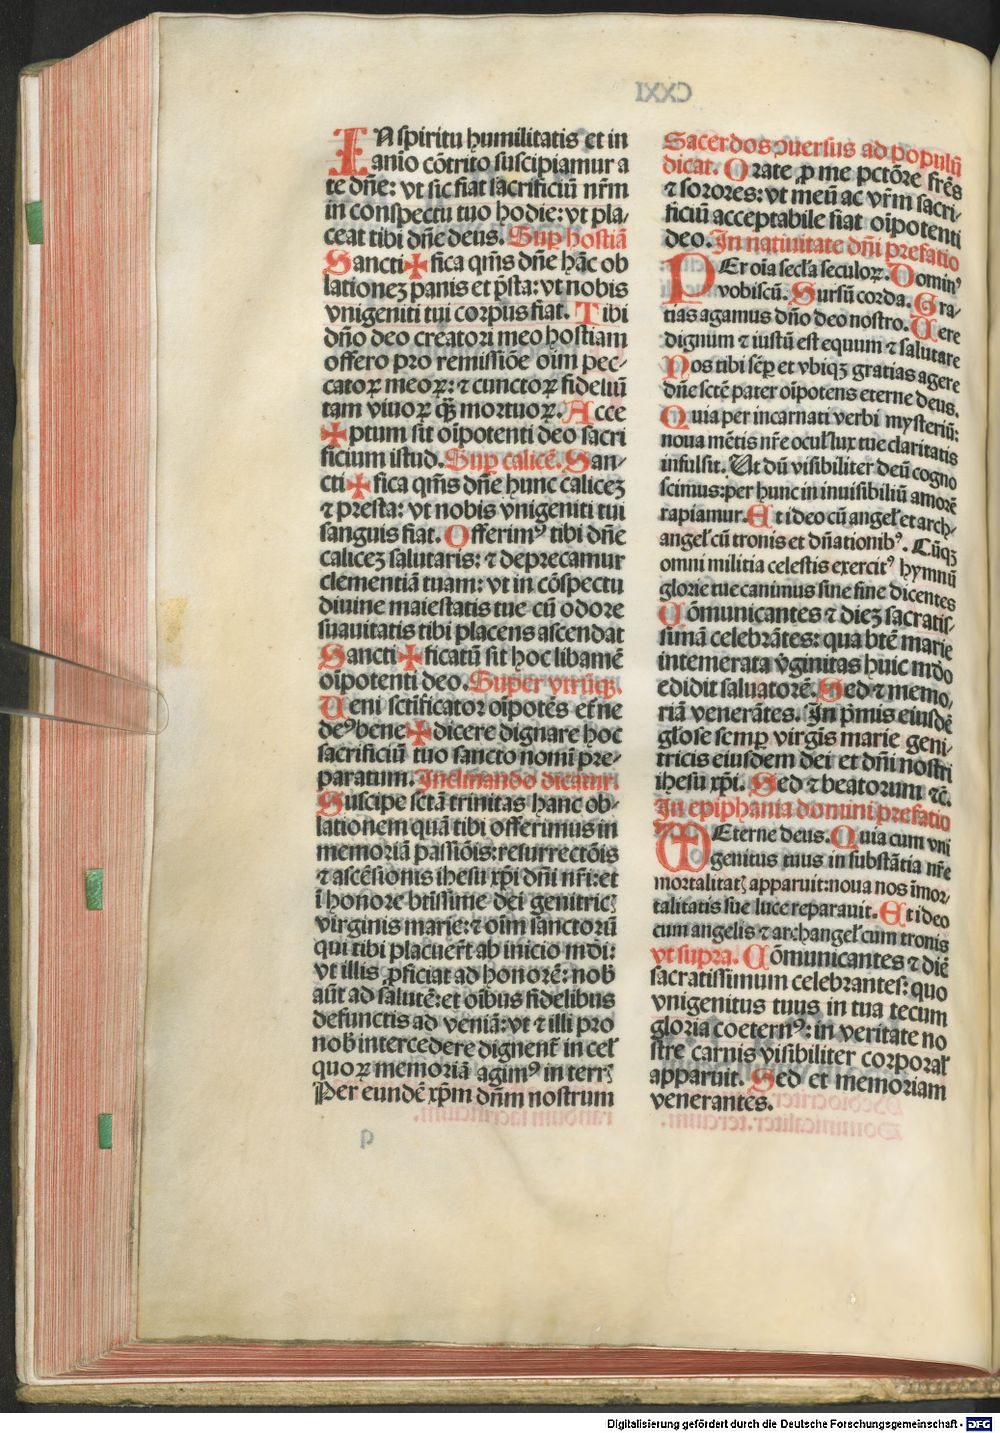 IN spiritu humilitatis et in
anīo cōtrito suscipiamur a
te dn̄e: vt sic fiat sacrificiū nr̄m
in conspectu tuo hodie: vt pla-
ceat tibi dn̄e deus. Suꝑ hostiā
Sancti ✠ fica qm̄s dn̄e hāc ob
lationeꝫ panis et p̄sta: vt nobis
vnigeniti tui corpus fiat. Tibi
dn̄o deo creatori meo hostiam
offero pro remissiōe oīm pec-
catoꝝ meoꝝ: ⁊ cunctoꝝ fideliū
tam viuoꝝ qꝫ̄ mortuoꝝ. Acce
✠ ptum sit oīpotenti deo sacri
ficium istud. Suꝑ calicē. San-
cti ✠ fica qm̄s dn̄e hunc caliceꝫ
⁊ presta: vt nobis vnigeniti tui
sanguis fiat. Offerimꝰ tibi dn̄e
caliceꝫ salutaris: ⁊ deprecamur
clementiā tuam: vt in cōspectu
diuine maiestatis tue cū odore
suauitatis tibi placens ascendat
Sancti ✠ ficatū sit hoc libamē
oīpotenti deo. Super vtrūqꝫ.
Ueni sctīficator oīpotēs et̄ne
deꝰ bene ✠ dicere dignare hoc
sacrificiū tuo sancto nomī pre-
paratum. Inclinando dicatur.
Suscipe sctā trinitas hanc ob-
lationem quā tibi offerimus in
memoriā passiōis: resurrectōis
⁊ ascēsionis ihesu xp̄i dn̄i nr̄i: et
ī honore btīssime dei genitricꝭ
virginis marie: ⁊ oīm sanctorū
qui tibi placuer̄t ab inicio mūdi:
vt illis ꝓficiat ad honorē: nob̄
aūt ad salutē: et oībus fidelibus
defunctis ad veniā: vt ⁊ illi pro
nob̄ intercedere dignent̄ in cel̄
quoꝝ memoriā agimꝰ in terrꝭ
Per eundē xp̄m dn̄m nostrum
Sacerdos ꝯuersus ad populū
dicat. Orate ꝓ me pctōre fr̄es
⁊ sorores: vt meū ac vr̄m sacri-
ficiū acceptabile fiat oīpotenti
deo. In natiuitate dn̄i prefatio
PEr oīa secl̄a seculoꝝ. Dominꝰ
vobiscū. Sursū corda. Gra-
tias agamus dn̄o deo nostro. Uere
dignum ⁊ iustū est equum ⁊ salutare
Nos tibi sēꝑ et vbiqꝫ gratias agere
dn̄e sctē pater oīpotens eterne deus.
Quia per incarnati verbi mysteriū:
noua mētis nr̄e ocul̄ lux tue claritatis
infulsit. Ut dū visibiliter deū cogno
scimus: per hunc in inuisibiliū amorē
rapiamur. Et ideo cū angel̄ et arch-
angel̄ cū tronis et dn̄ationibꝰ. Cūqꝫ
omni militia celestis exercitꝰ hymnū
glorie tue canimus sine fine dicentes
Cōmunicantes ⁊ dieꝫ sacratis-
simā celebrātes: qua btē marie
intemerata v̄ginitas huic mūdo
edidit saluatorē. Sed ⁊ memo-
riā venerātes. In p̄mis eiusdē
gl̄ose semꝑ virgīs marie geni-
tricis eiusdem dei et dn̄i nostri
ihesu xp̄i. Sed ⁊ beatorum ⁊c̄.
In epiphania domini prefatio
Eterne deus. Quia cum vni
genitus tuus in substātia nr̄e
mortalitatꝭ apparuit: noua nos īmor-
talitatis sue luce reparauit. Et ideo
cum angelis ⁊ archangel̄ cum tronis
vt supra. Cōmunicantes ⁊ diē
sacratissimum celebrantes: quo
vnigenitus tuus in tua tecum
gloria coeternꝰ: in veritate no
stre carnis visibiliter corporal̄
apparuit. Sed et memoriam
venerantes.
Digitalisierung gefördert durch die Deutsche Forschungsgemeinschaft - DFG